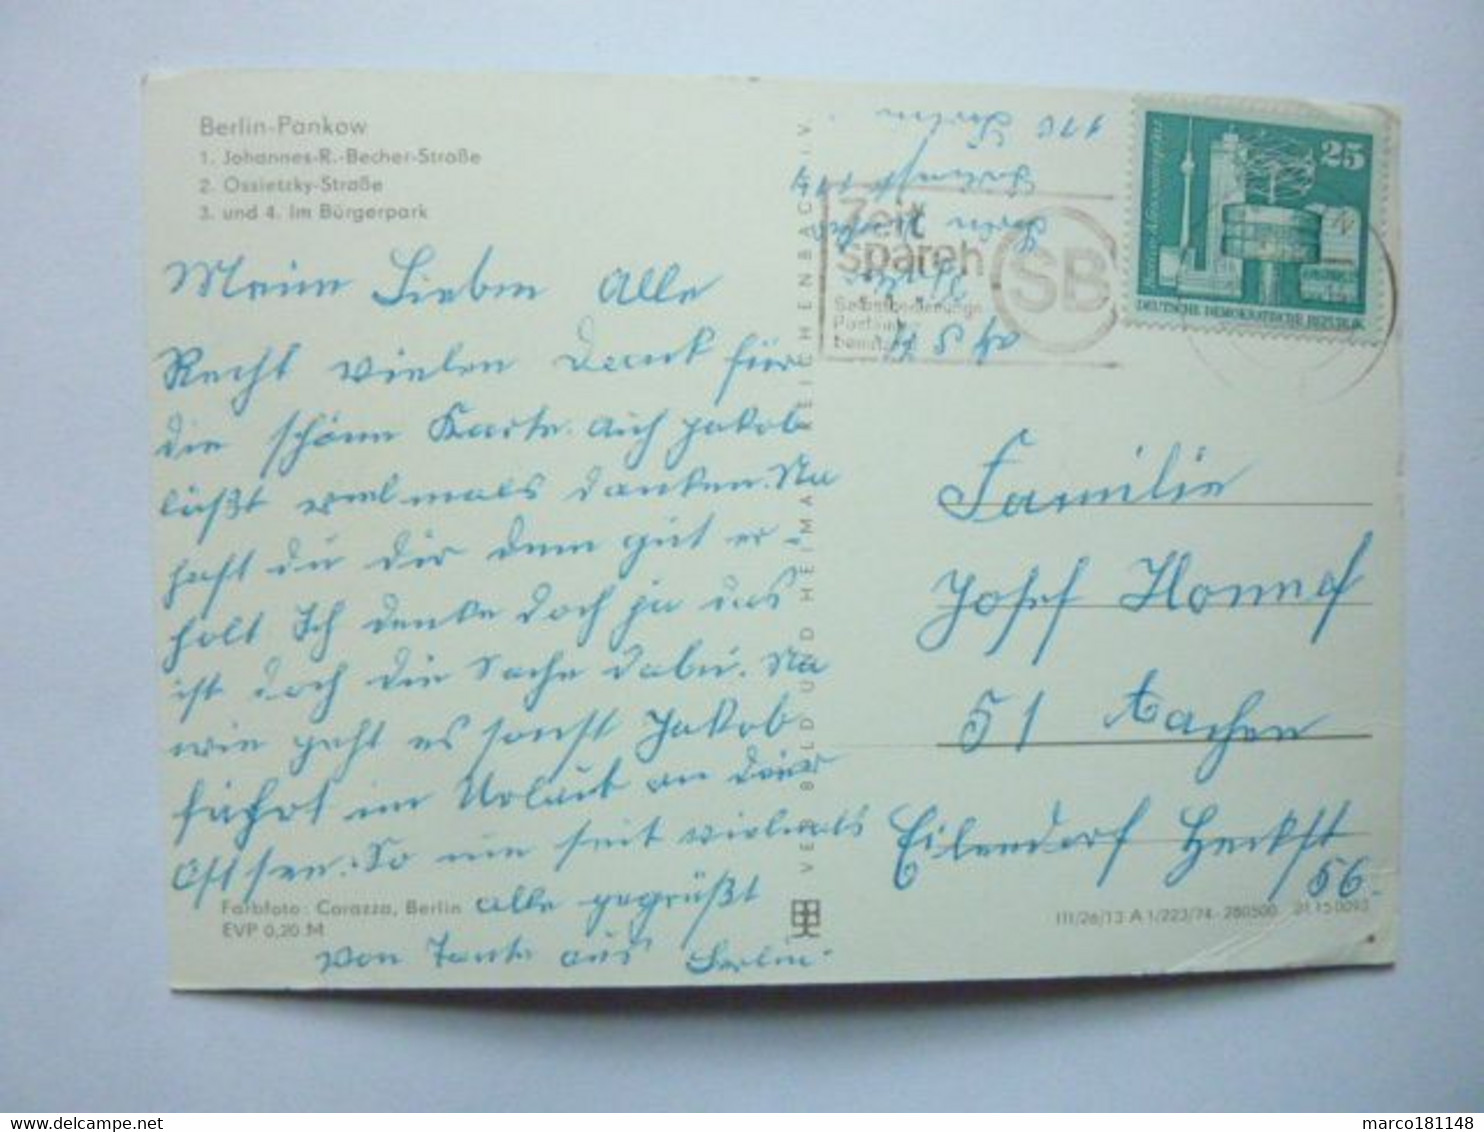 Berlin-Pankow
1. Johannes-R.-Becher-Straße
2. Ossietzky-Straße
3. und 4. Im Bürgerpark
Meine Lieben Alle
Recht vielen Dank für
die schöne Karte. Auch Jakob
läßt vielmals danken. Na
hast du dir denn gut er-
holt Ich denke doch ja das
ist doch die Sache dabei. Na
wie geht es sonst Jakob
fährt im Urlaub an die
Ostsee. So nun seit vielmals
alle gegrüßt
von Tante aus Berlin.
Farbfoto: Carazza, Berlin
EVP 0,20 M
VEB BILD UND HEIMAT REICHENBACH I. V.
110 Berlin
Zeit
sparen
SB
Selbstbedienungs
25
DEUTSCHE DEMOKRATISCHE REPUBLIK
Familie
Josef Honnef
51 Aachen
Eilendorf Heckstr
56.
III/26/13 A 1/223/74 280500
marco181148
www.delcampe.net